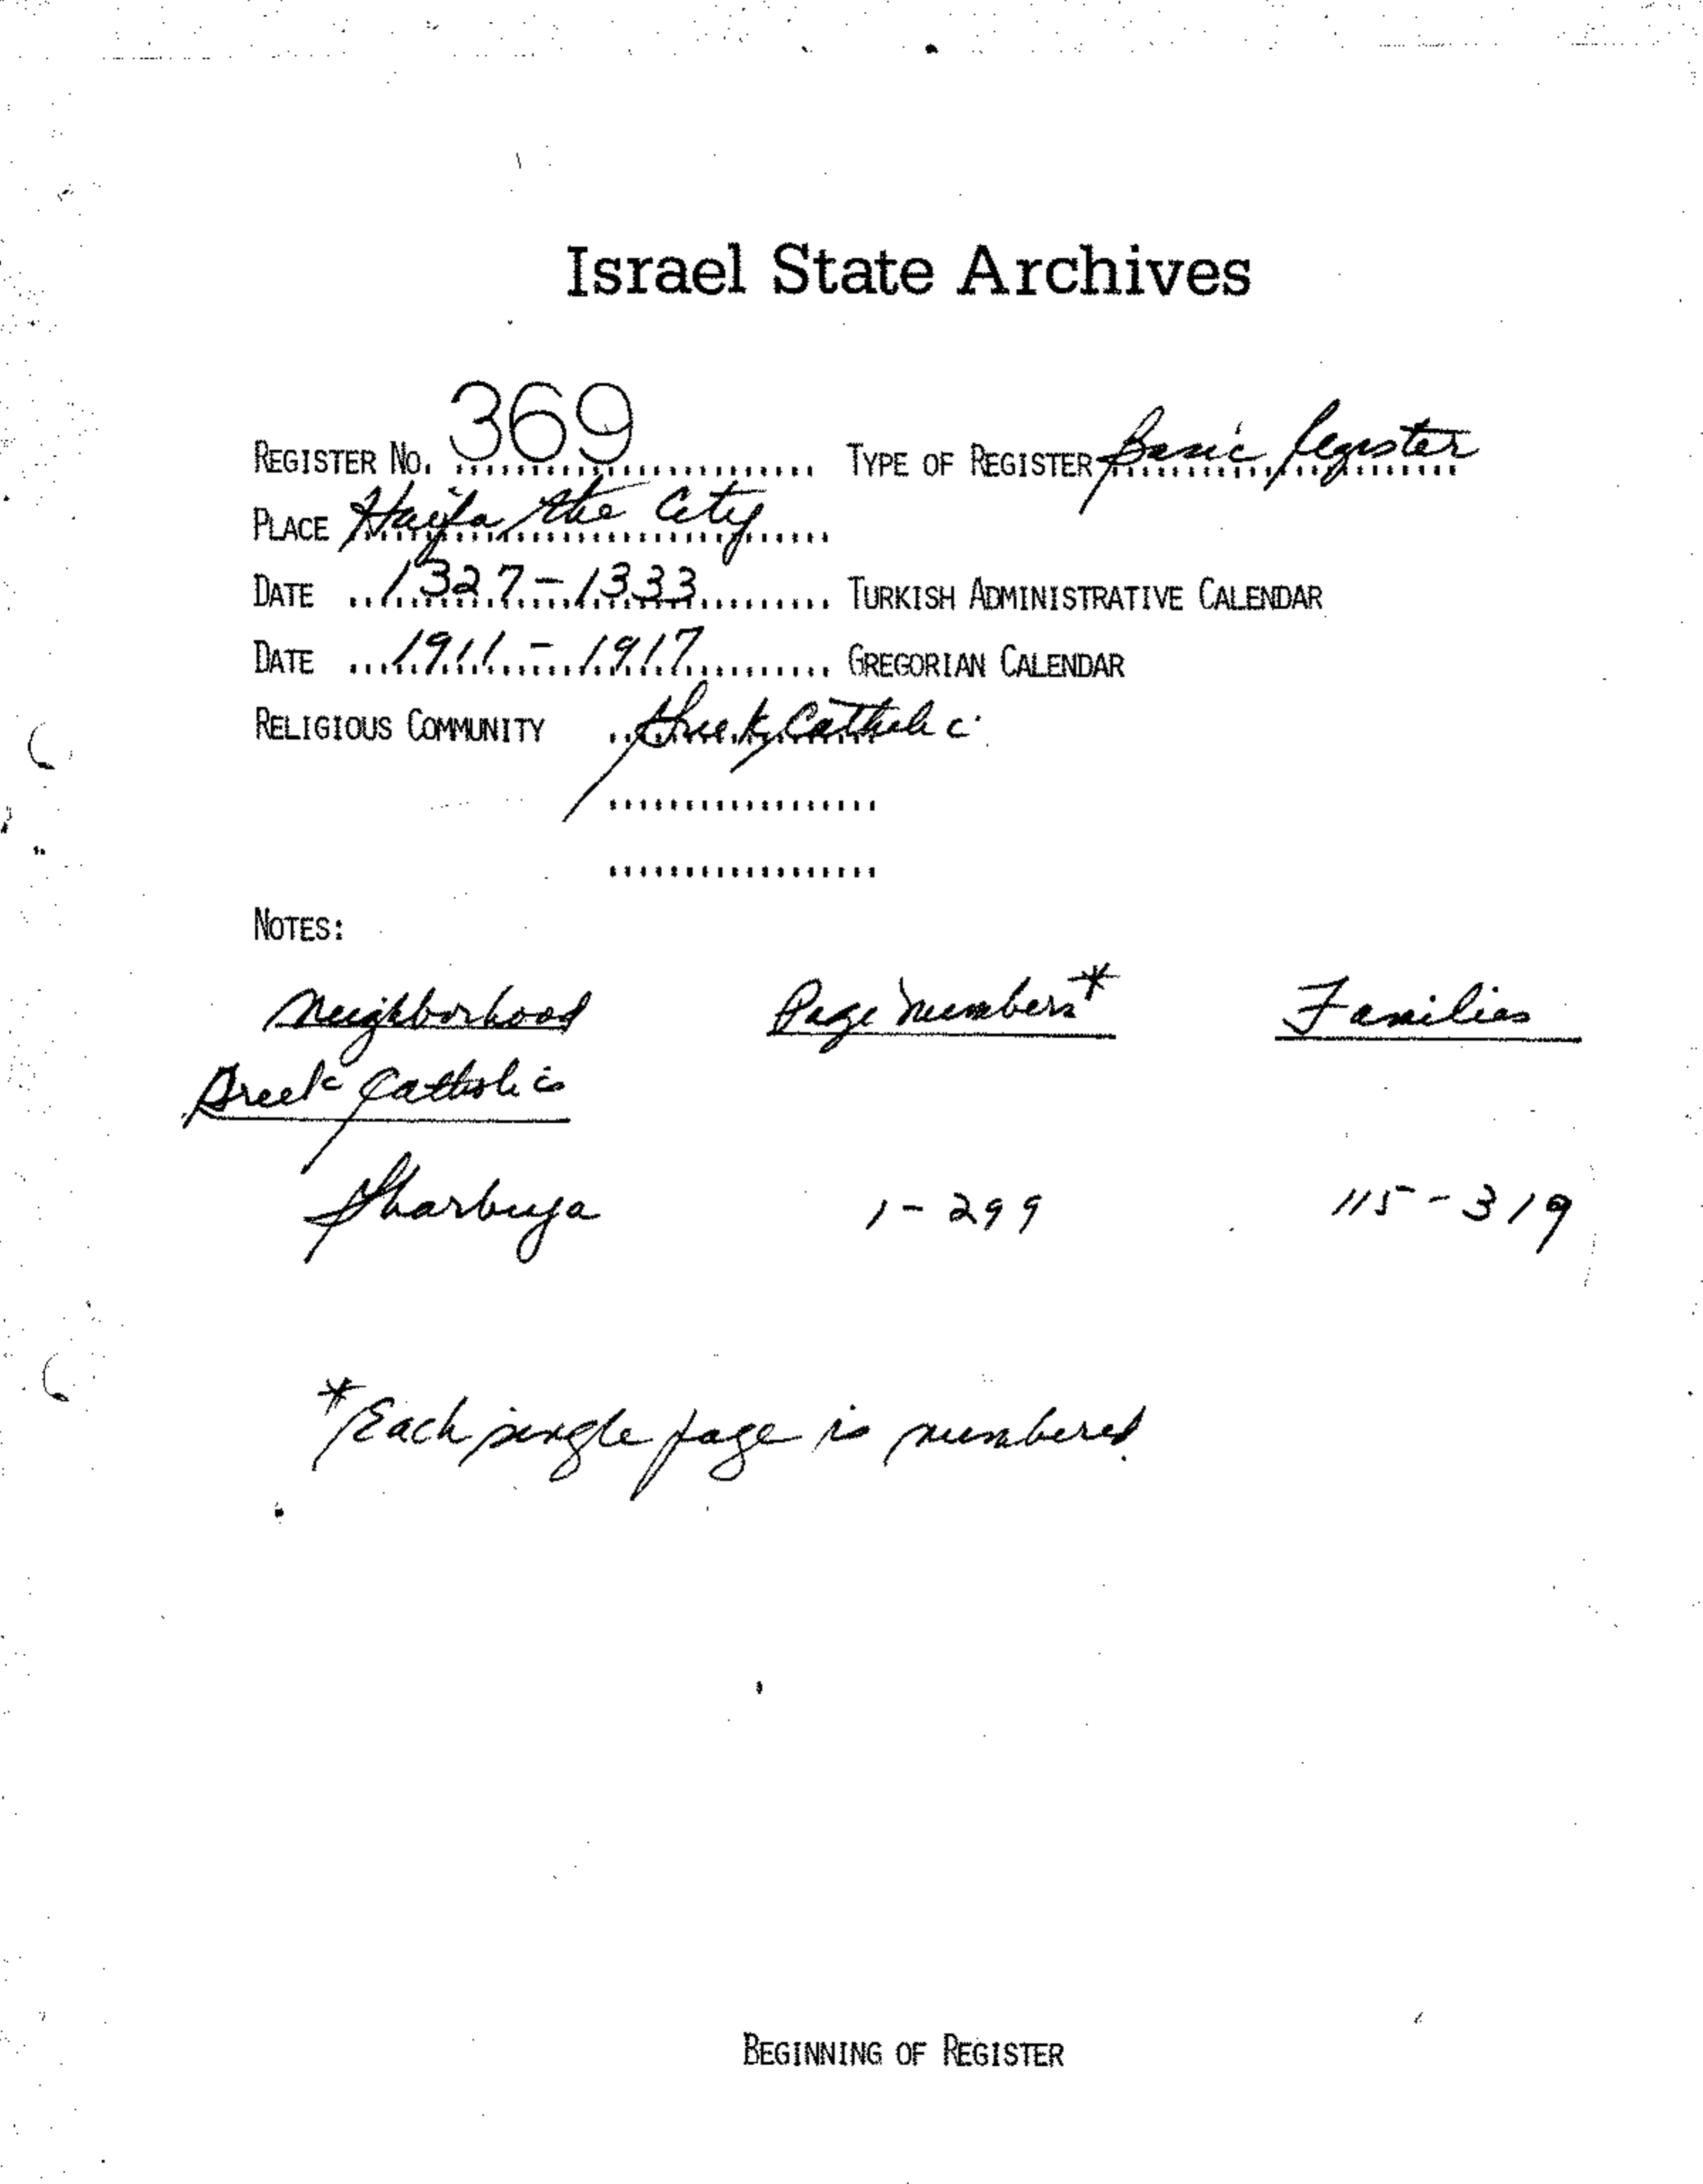 Israel State Archives
REGISTER No. 369 TYPE OF REGISTER Basic register
PLACE Haifa the City
DATE 1327-1333 TURKISH ADMINISTRATIVE CALENDAR
DATE 1911-1917 GREGORIAN CALENDAR
RELIGIOUS COMMUNITY Greek Catholic
NOTES:
Neighborhood Page numbers* Families
Greek Catholic
Sharbuya 1-299 115-319
*Each single page is numbered.
BEGINNING OF REGISTER